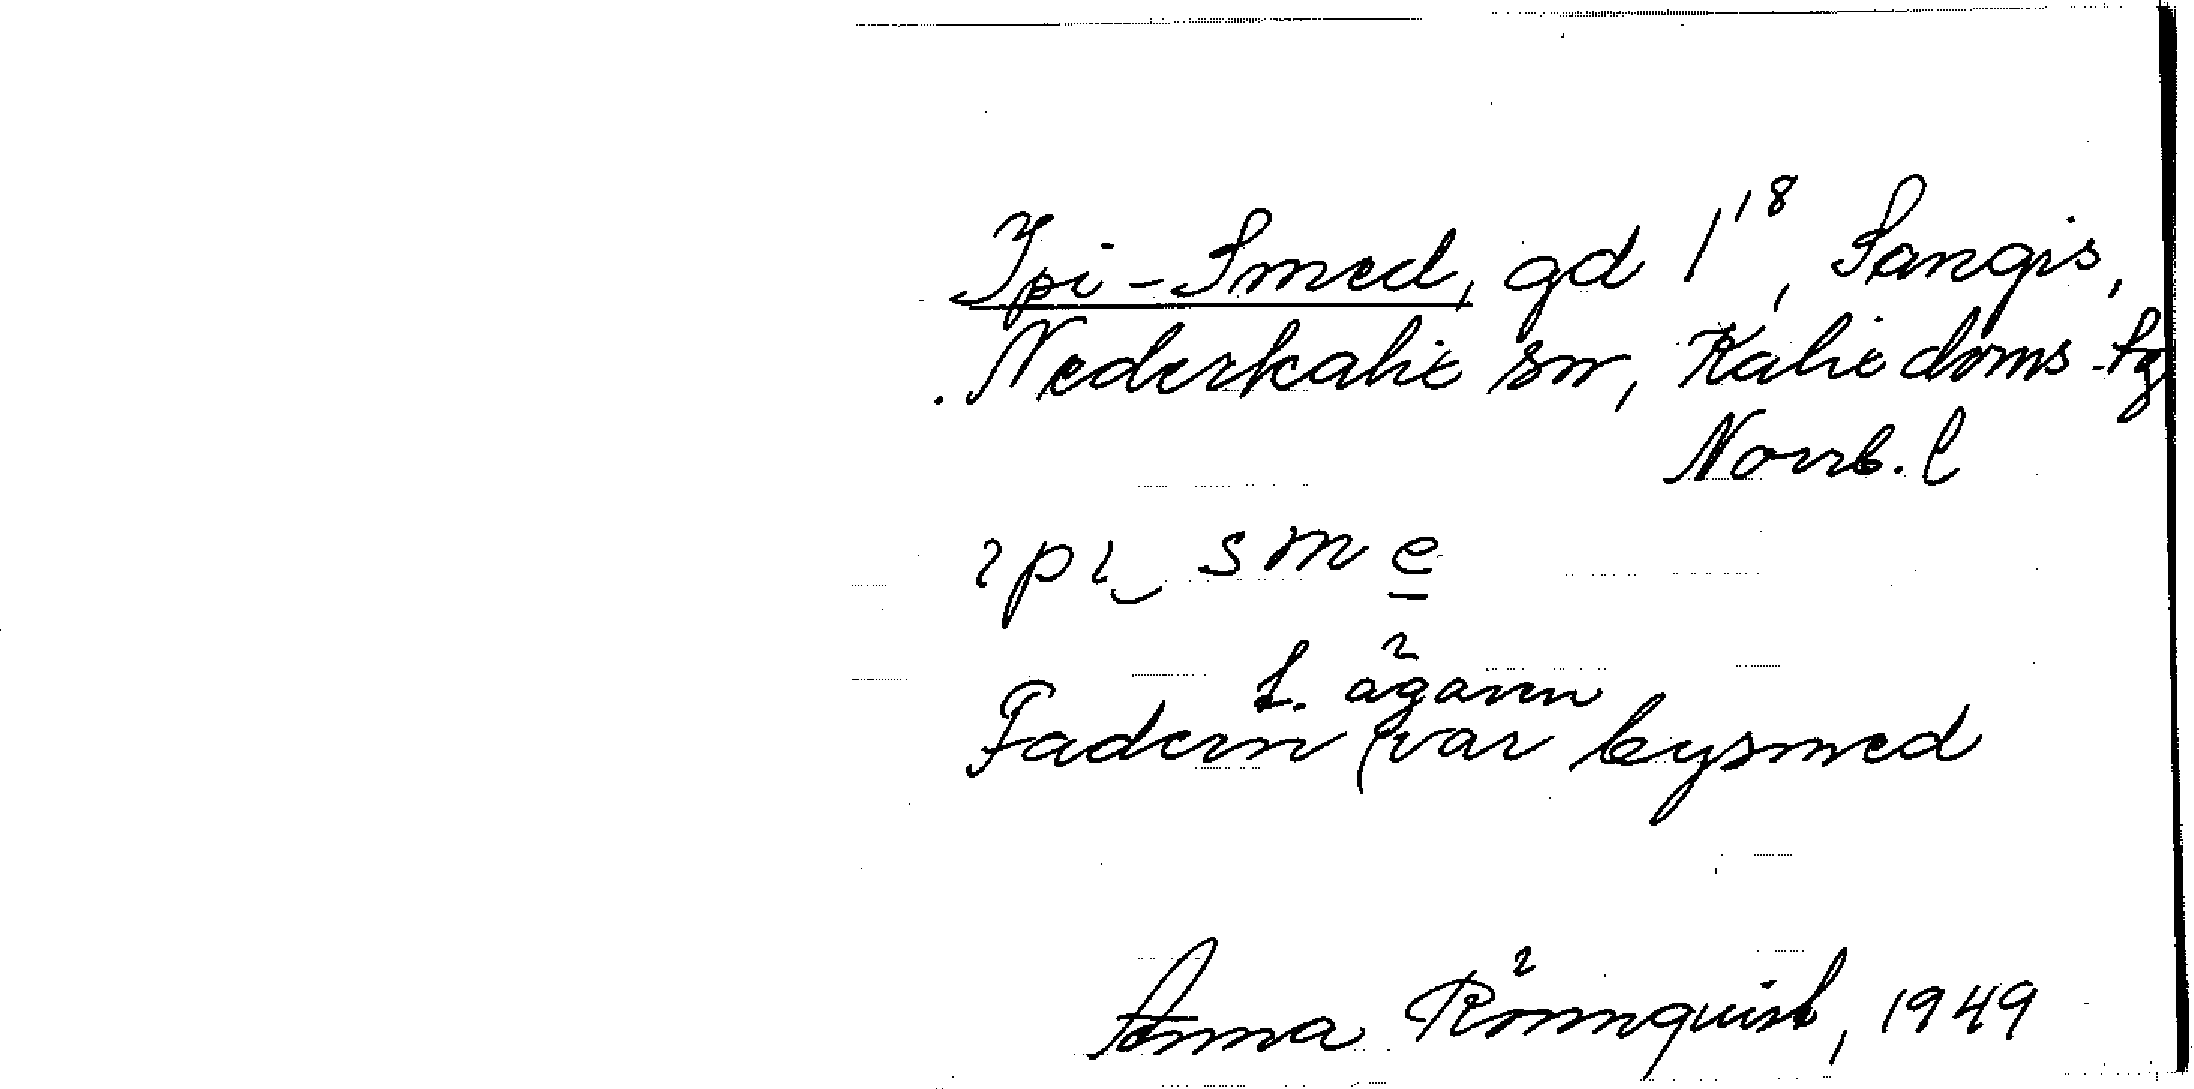 Ipi-Smed, gd 1¹⁸, Sangis,
Nederkalix sn, Kalix doms. tg
Norrb. l
ıpı‿sme̲
t. ägaren
Fadern (var bysmed
Anna Rönnquist, 1949